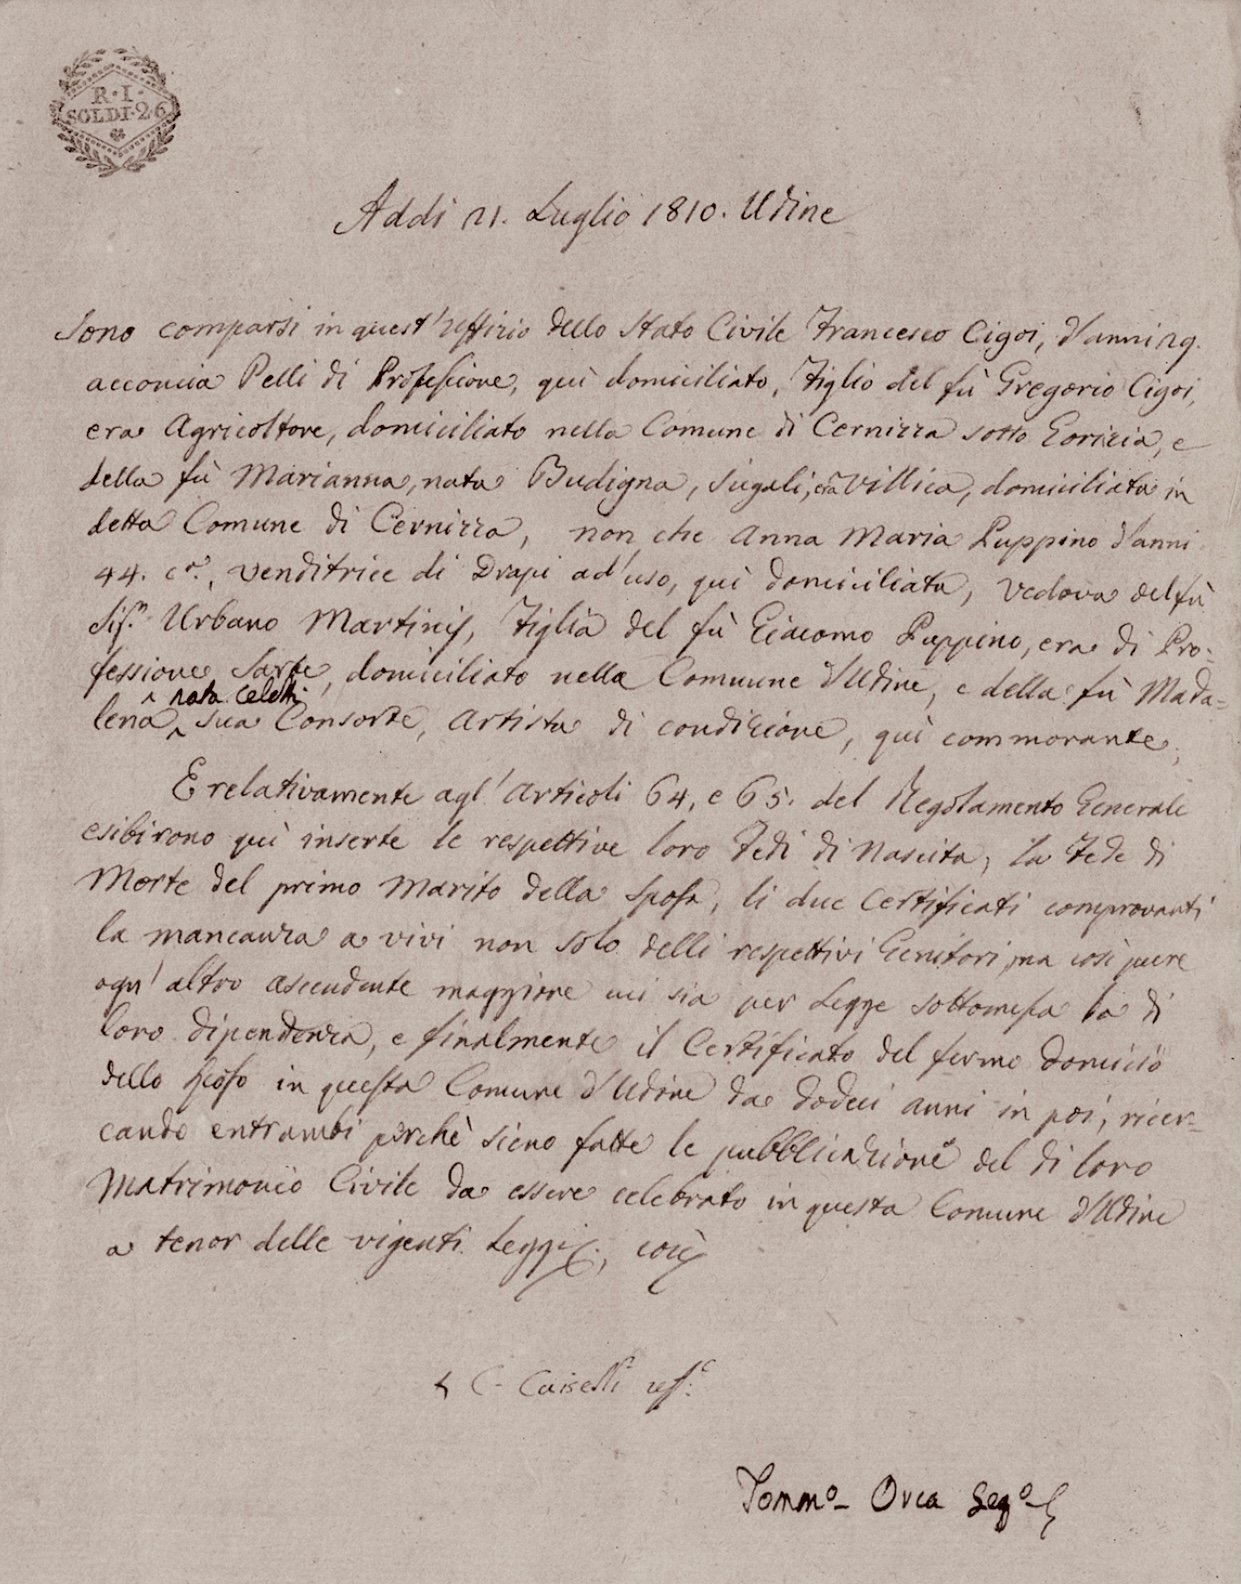 R. I.
SOLDI. 26
Addi 21. Luglio 1810. Udine
Sono comparsi in quest'Uffizio dello Stato Civile Francesco Cigoi, d'anni 29.
acconcia Pelli di Professione, quì domiciliato, Figlio del fù Gregorio Cigoi,
era Agricoltore, domiciliato nella Comune di Cernizza sotto Gorizia, e
della fù Marianna, nata Budigna, Sigali, era Villica, domiciliata in
detta Comune di Cernizza, non che Anna Maria Puppino d'anni
44. c.a, venditrice di Drapi ad'uso, quì domiciliata, Vedova del fù
Sig.r Urbano Martinis, Figlia del fù Giacomo Puppino, era di Pro=
fessione Sarte, domiciliato nella Comune d'Udine, e della fù Mada=
nata Celetti
lena sua Consorte, Artista di condizione, quì commorante,
E relativamente agl'Articoli 64, e 65. del Regolamento Generale
esibirono quì inserte le respettive loro Fedi di Nascita, la Fede di
Morte del primo Marito della Sposa, li due Certificati comprovanti
la mancanza a vivi non solo delli respettivi Genitori, ma così pure
ogn'altro ascendente maggiore cui sia per Legge sottomessa la di
loro dipendenza, e finalmente il Certificato del fermo domicio
dello Sposo in questa Comune d'Udine da dodeci anni in poi, ricer=
cando entrambi perchè sieno fatte le pubblicazione del di loro
Matrimonio Civile da essere celebrato in questa Comune d'Udine
a tenor delle vigenti Leggi,
C. Caiselli
Tomm.o Orca Seg.o